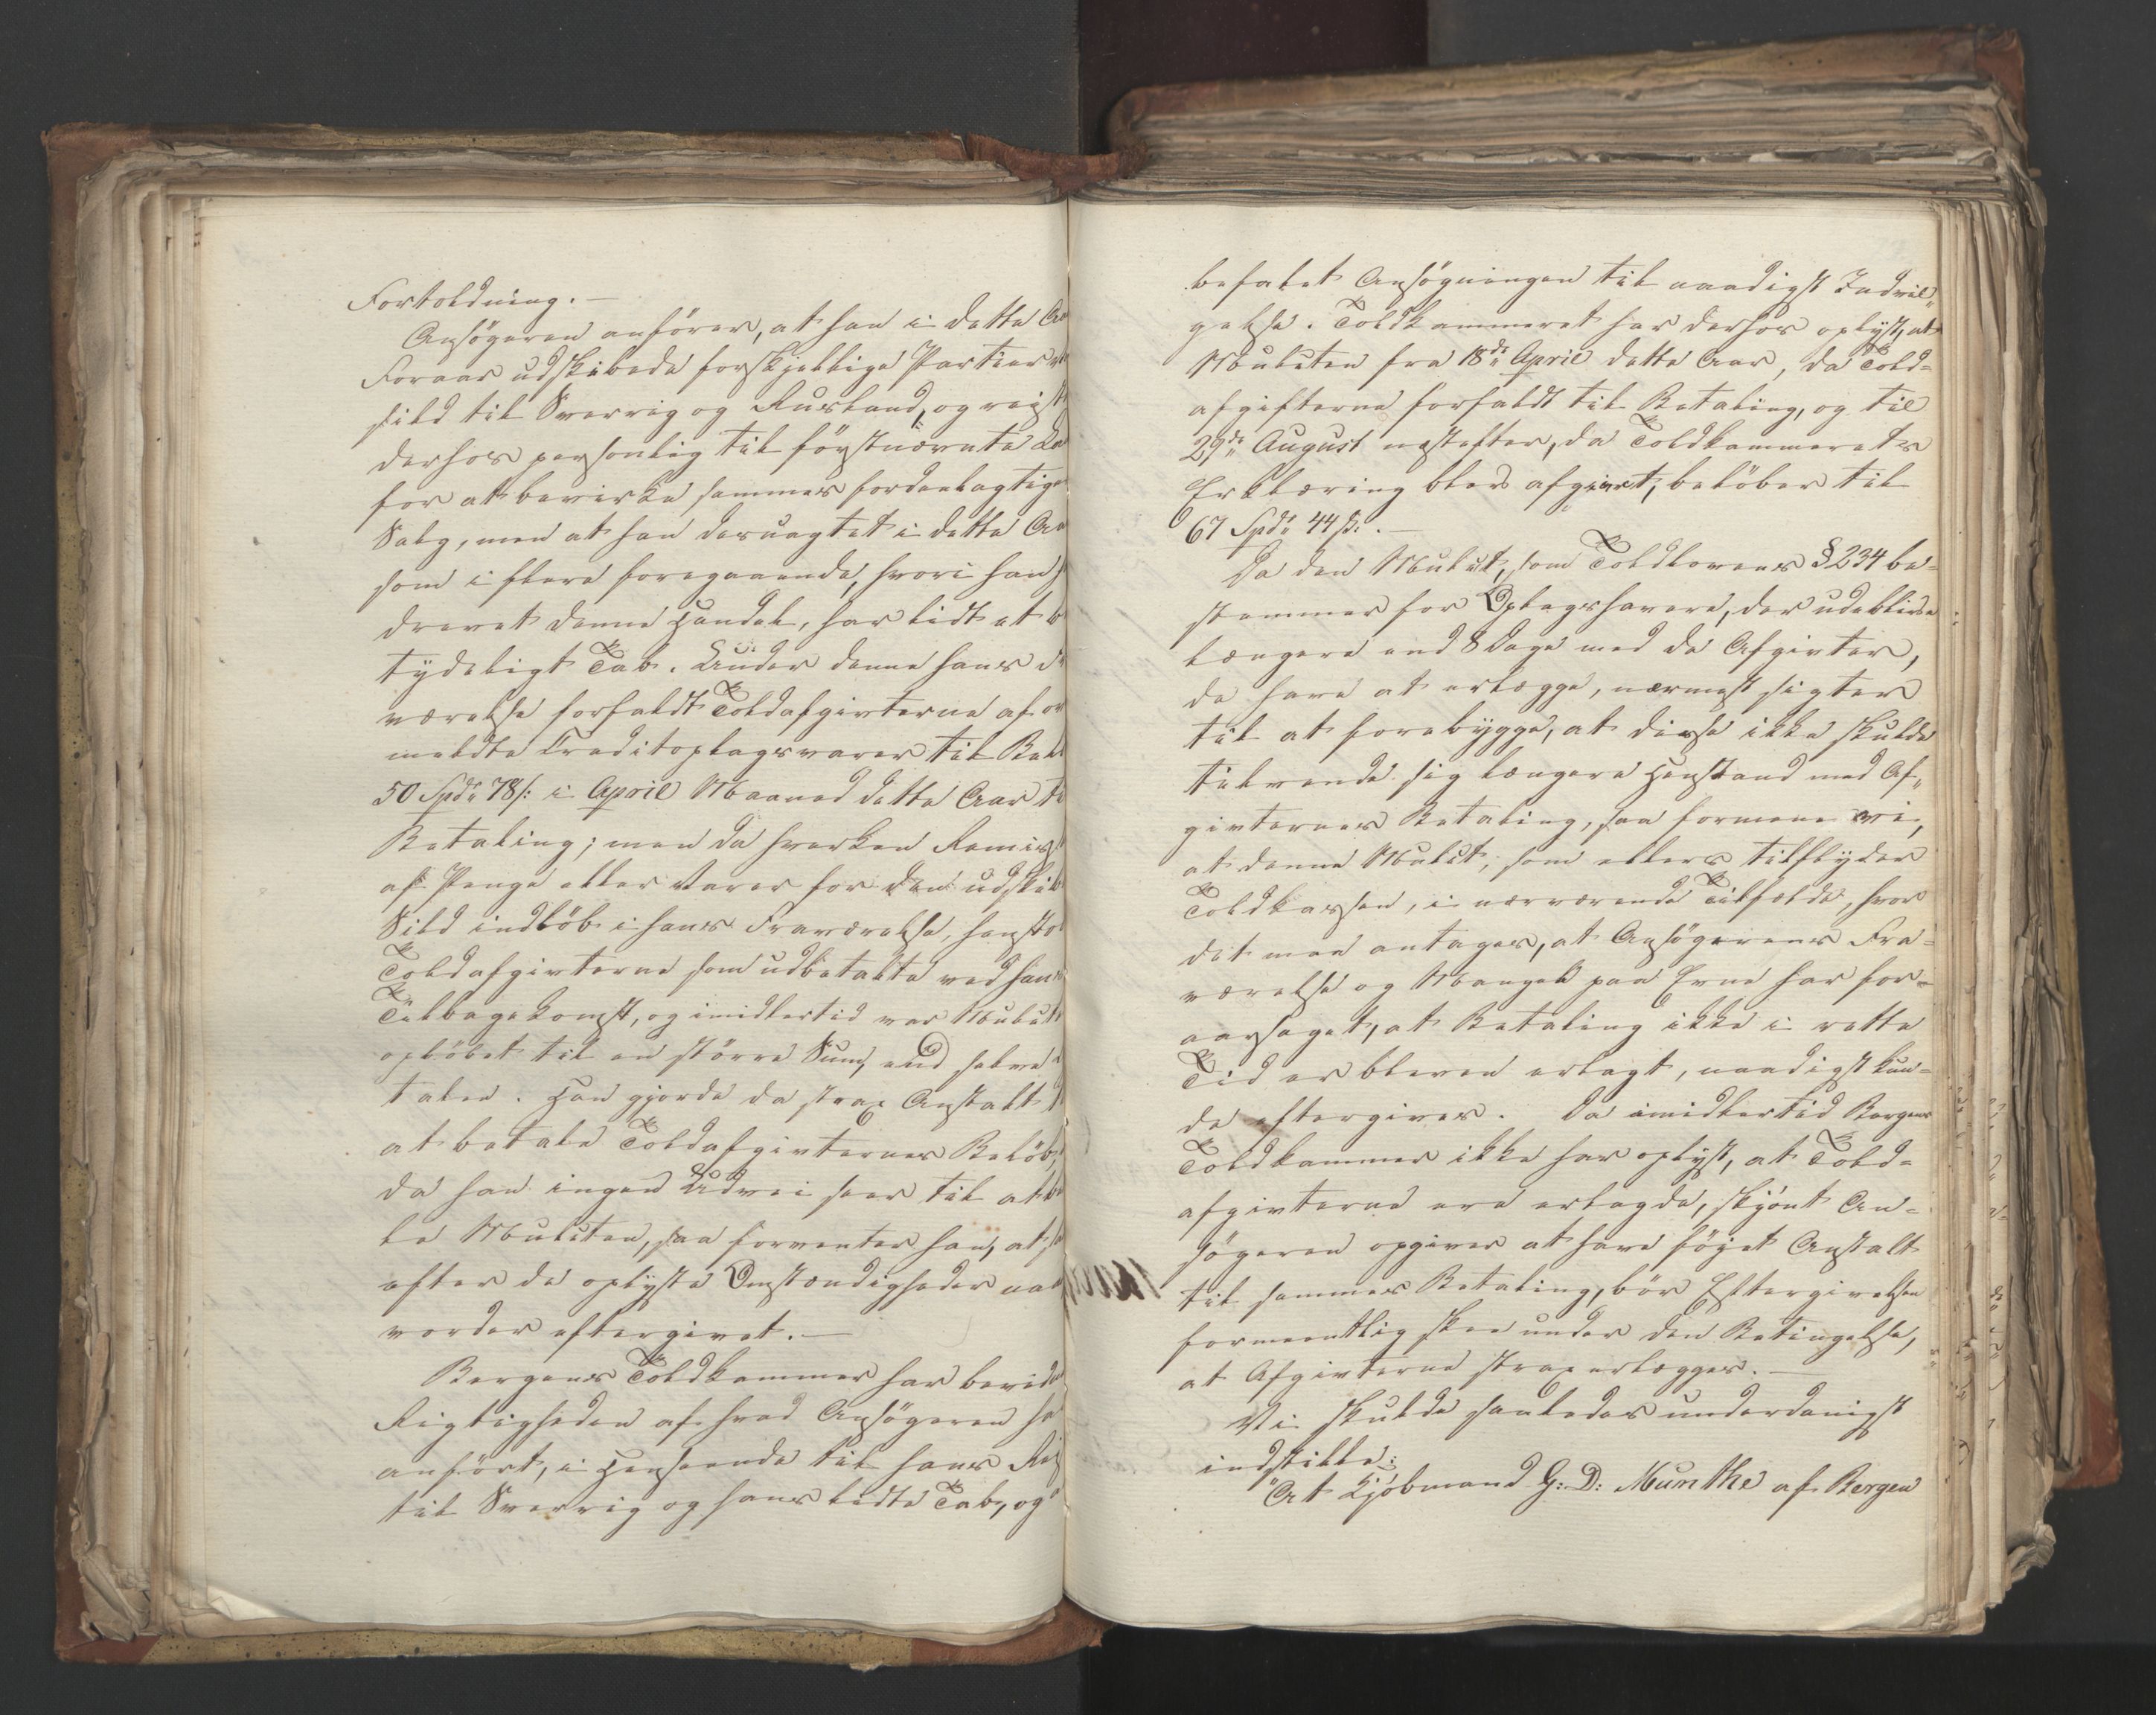 Fortoldning. —
Ansøgeren anfører, at han i dette Aa
Foraar udskibede forskjellige Partier
sild til Sverrig og Rusland, og reist
derhos personlig til førstnævnte La
for at bevirke sammes fordeelagtige
Salg, men at han desuagtet i dette Aa
som i flere foregaaende, hvori han h
drevet denne Handel, har lidt et b
tydeligt Tab. Under denne hans
værelse forfaldt Toldafgivterne af o
meldte Creditoplagsvarer til Bel
50 Spd: 78 s: i April Maaned dette Aar ti
Betaling; men da hverken Remiss
af Penge eller Varer for den udskib
Sild indløb i hans Fraværelse, henstod
Toldafgivterne som udbetalte ved hans
Tilbagekomst, og imidlertid var Mulct
opløbet til en større Sum, end selve
talen. Han gjorde da strax Anstalt t
at betale Toldafgivternes Beløb,
da han ingen Udvei seer til at be
le Mulcten, saa forventer han, at
efter de oplyste Omstændigheder naa
vorder eftergivet. —
Bergens Toldkammer har bevidn
Rigtigheden af hvad Ansøgeren ha
anført, i Henseende til hans Reis
til Sverrig og hans lidte Tab, og
befalet Ansøgningen til naadigst Indvil„
gelse. Toldkammeret har derhos oplyst, at
Mulcten fra 18de April dette Aar, da Told=
afgifterne forfaldt til Betaling, og til
29de August næstefter, da Toldkammerets
Erklæring blev afgivet, beløber til
67 Spd: 44 s:. —
Da den Mulct, som Toldlovens § 234 be=
stemmer for Oplagshavere, der udeblive
længere end 8 Dage med de Afgivter,
de have at erlægge, nærmest sigter
til at forebygge, at disse ikke skulde
tilvende sig længere Henstand med Af„
givternes Betaling, saa formene vi,
at denne Mulct, som ellers tilflyder
Toldkassen, i nærværende Tilfælde, hvor
det maa antages, at Ansøgerens Fra=
værelse og Mangel paa Evne har for=
aarsaget, at Betaling ikke i rette
Tid er bleven erlagt, naadigst kun=
de eftergives. Da imidlertid Bergens
Toldkammer ikke har oplyst, at Told=
afgivterne ere erlagde, skjønt An=
søgeren opgiver at have føjet Anstalt
til sammes Betaling, bør Eftergivelsen
formeentlig skee under den Betingelse,
at Afgivterne strax erlægges. —
Vi skulde saaledes underdanigst
indstille:
At Kjøbmand G: D: Munthe af Bergen